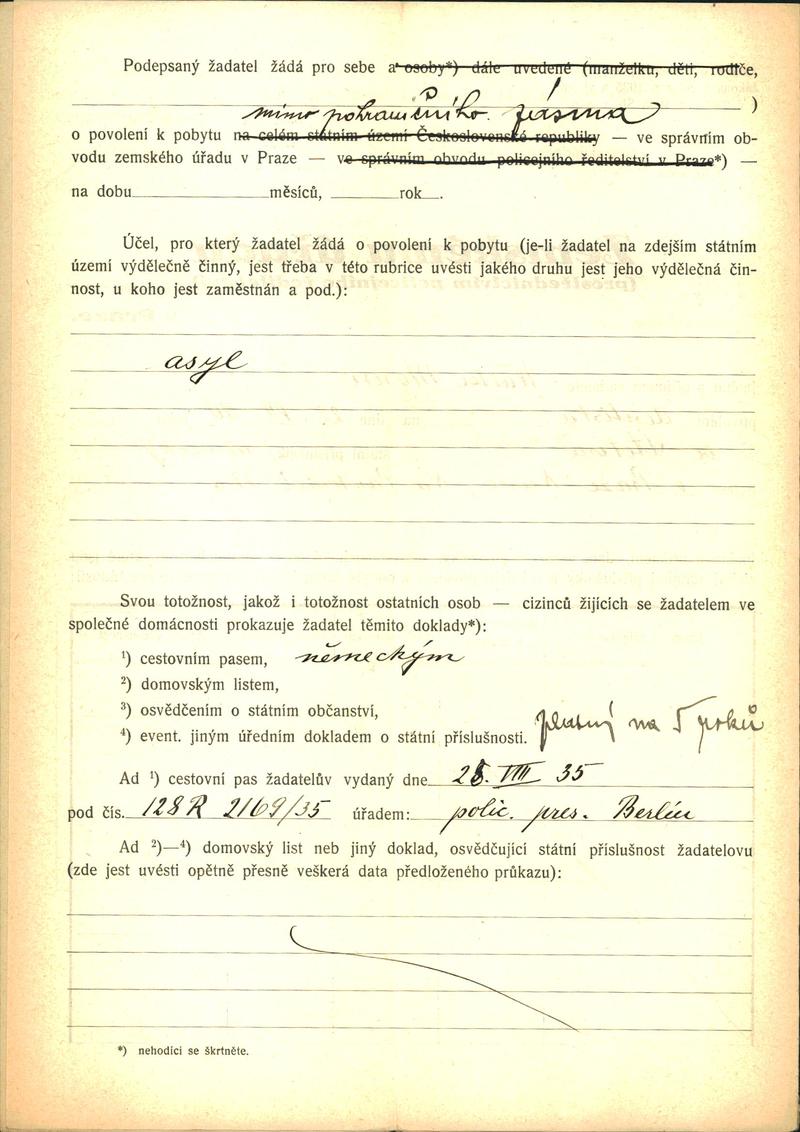 Podepsaný žadatel žádá pro sebe a osoby*) dále uvedené (manželku, děti, rodiče,
)
mimo pohraničního pásma
o povolení k pobytu na celém státním území Československé republiky — ve správním ob-
vodu zemského úřadu v Praze — ve správním obvodu policejního ředitelství v Praze*) —
na dobu měsíců, rok .
Účel, pro který žadatel žádá o povolení k pobytu (je-li žadatel na zdejším státním
území výdělečně činný, jest třeba v této rubrice uvésti jakého druhu jest jeho výdělečná čin-
nost, u koho jest zaměstnán a pod.):
asyl
Svou totožnost, jakož i totožnost ostatních osob — cizinců žijících se žadatelem ve
společné domácnosti prokazuje žadatel těmito doklady*):
¹) cestovním pasem, německým
²) domovským listem,
³) osvědčením o státním občanství,
⁴) event. jiným úředním dokladem o státní příslušnosti. platný na 5 roků
Ad ¹) cestovní pas žadatelův vydaný dne 28. VIII 35
pod čís. 128 R 2169/35 úřadem: polic. pres. Berlín
Ad ²)—⁴) domovský list neb jiný doklad, osvědčující státní příslušnost žadatelovu
(zde jest uvésti opětně přesně veškerá data předloženého průkazu):
*) nehodící se škrtněte.